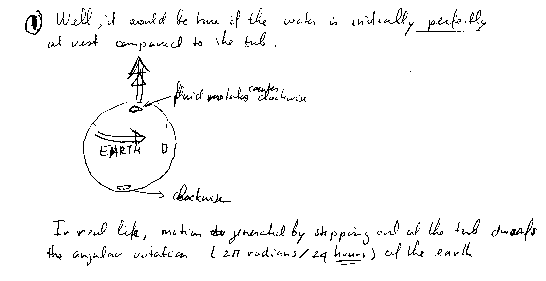 ① Well, it would be true if the water is initially perfectly
at rest compared to the tub.
fluid rotates counter clockwise
EARTH
clockwise
In real life, motion generated by stepping out of the tub dwarfs
the angular rotation (2π radians/24 hours) of the earth